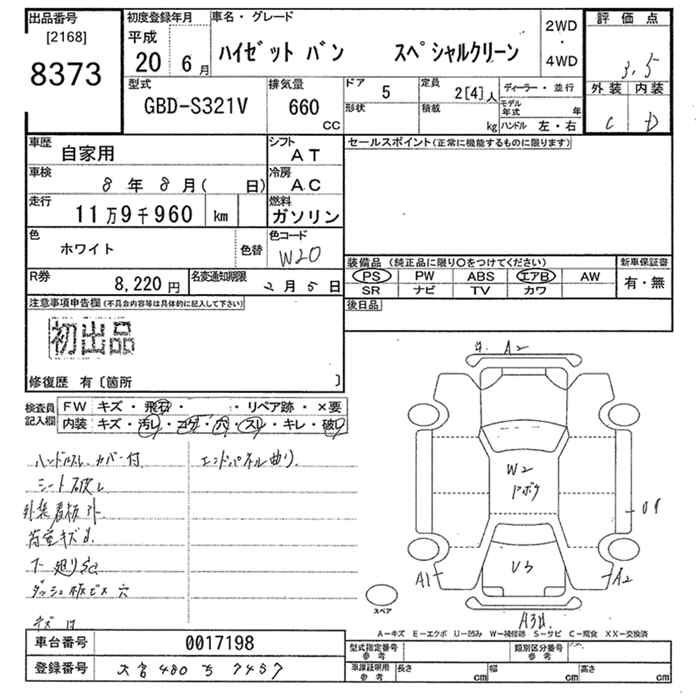 出品番号
[2168]
8373
初度登録年月
平成
20 6月
車名・グレード
ハイゼット バン スペシャルクリーン
2WD
・
4WD
評価点
3.5
外装 内装
C D
型式
GBD-S321V
排気量
660
CC
ドア
5
形状
定員
2[4]人
積載
kg
ディーラー・並行
モデル年式 年
ハンドル 左・右
車歴
自家用
シフト
AT
車検
8年8月( 日)
冷房
AC
走行
11万9千960 km
燃料
ガソリン
色
ホワイト
色替
色コード
W20
R券
8,220円
名変通知期限
2月5日
セールスポイント(正常に機能するものに限ります)
装備品 (純正品に限り○をつけてください)
PS PW ABS エアB AW
SR ナビ TV カワ
新車保証書
有・無
後日品
注意事項申告欄(不具合内容等は具体的に記入して下さい)
初出品
修復歴 有〔箇所 〕
検査員
記入欄
FW キズ・飛石・ ・リペア跡・×要
内装 キズ・汚レ・コゲ・穴・スレ・キレ・破レ
ハンドルスレ カバー付
エンドパネル曲り
シート破レ
外装看板跡
荷室キズ
ダッシュ板ビス穴
キ A2
W2
U3
A1
A2
スペア
A-キズ E-エクボ U-凹み W-補修跡 S-サビ C-腐食 XX-交換済
車台番号
0017198
登録番号
480 7457
型式指定番号
参考
類別区分番号
参考
車庫証明用
参考
長さ cm 幅 cm 高さ cm